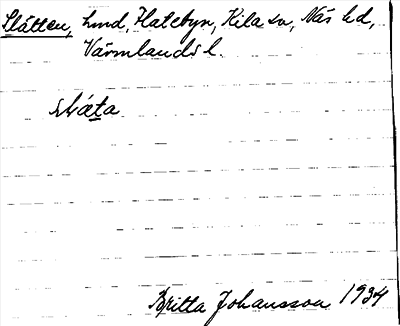 Slåtten, hmd, Hatebyn, Kila sn, Näs hd,
Värmlands l.
slå̀ta
Britta Johansson 1934